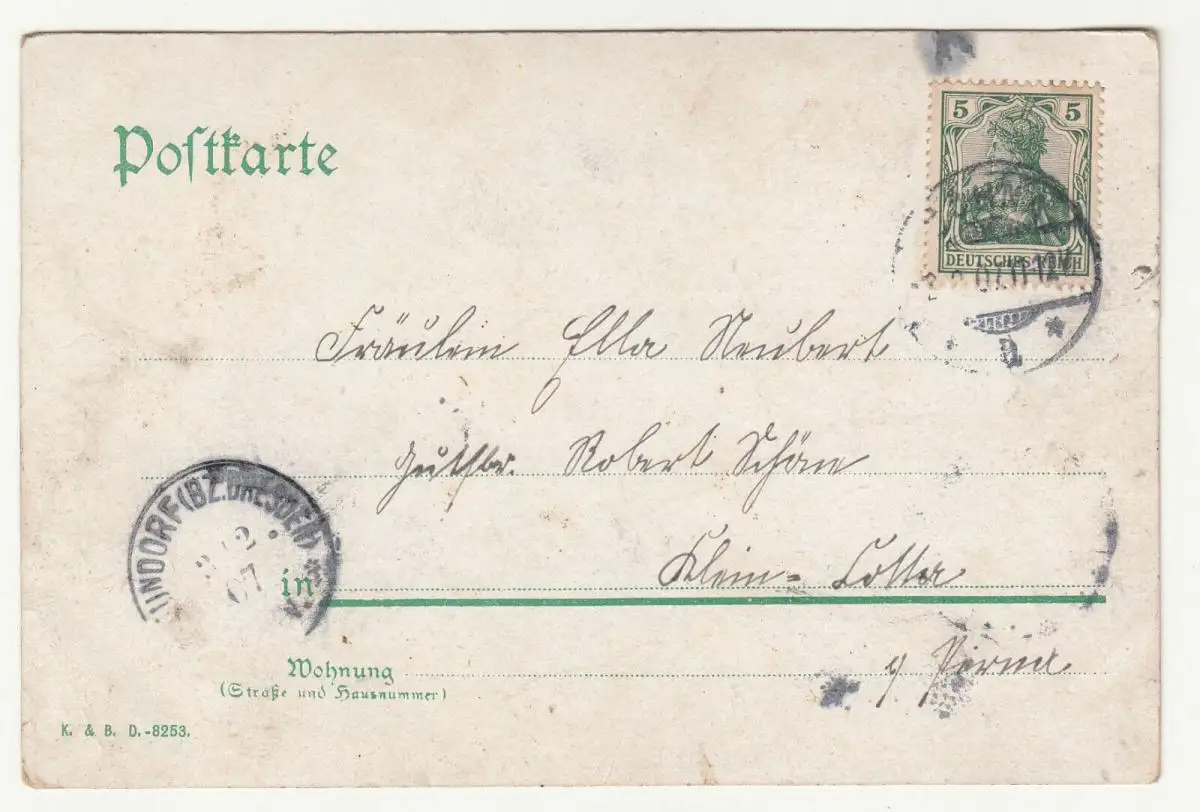 Postkarte
5 5
DEUTSCHES REICH
Fräulein Ella Neubert
Gutsbr. Robert Schöne
(BZ. DRESDEN)
07
in Klein-Cotta
Wohnung
(Straße und Hausnummer)
Pirna
K. & B. D.-8253.